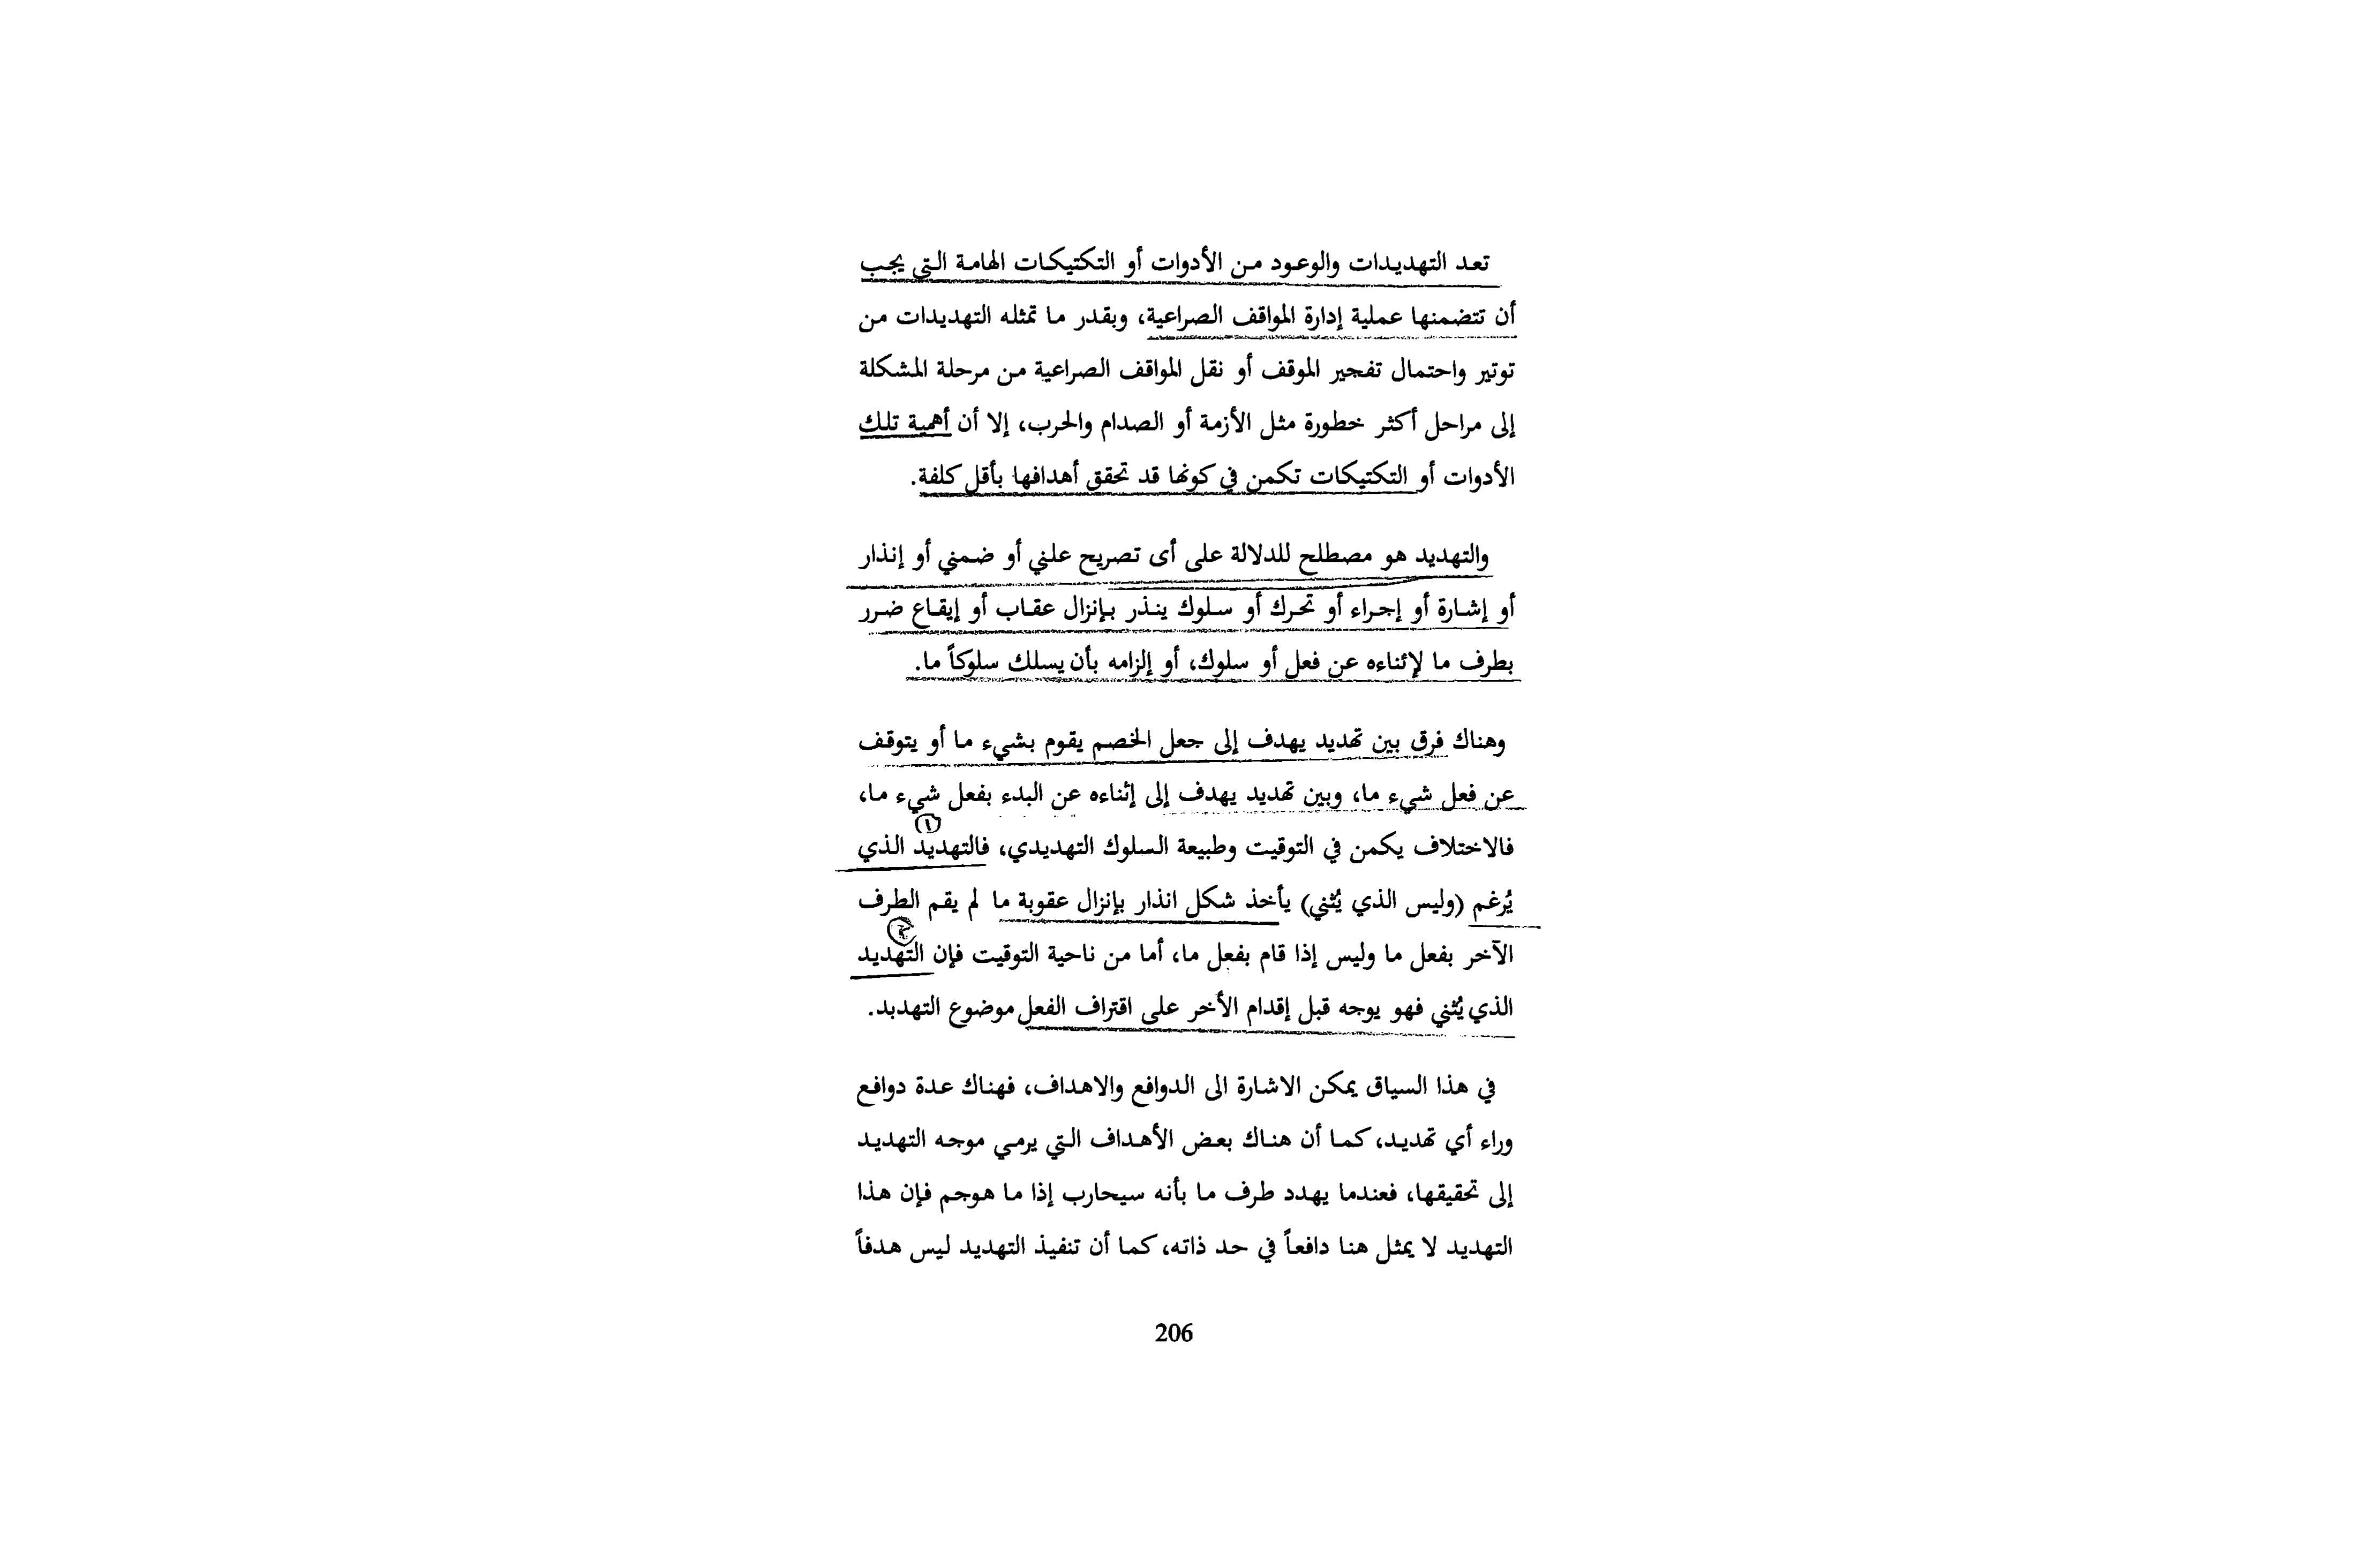 تعد التهديدات والوعود من الأدوات أو التكتيكات الهامة التي يجب
أن تتضمنها عملية إدارة المواقف الصراعية، وبقدر ما تمثله التهديدات من
توتير واحتمال تفجير الموقف أو نقل المواقف الصراعية من مرحلة المشكلة
إلى مراحل أكثر خطورة مثل الأزمة أو الصدام والحرب، إلا أن أهمية تلك
الأدوات أو التكتيكات تكمن في كونها قد تحقق أهدافها بأقل كلفة.
والتهديد هو مصطلح للدلالة على أى تصريح علني أو ضمني أو إنذار
أو إشارة أو إجراء أو تحرك أو سلوك ينذر بإنزال عقاب أو إيقاع ضرر
بطرف ما لإثناءه عن فعل أو سلوك، أو إلزامه بأن يسلك سلوكاً ما.
وهناك فرق بين تهديد يهدف إلى جعل الخصم يقوم بشيء ما أو يتوقف
عن فعل شيء ما، وبين تهديد يهدف إلى إثناءه عن البدء بفعل شيء ما،
١
فالاختلاف يكمن في التوقيت وطبيعة السلوك التهديدي، فالتهديد الذي
يُرغم (وليس الذي يُثني) يأخذ شكل انذار بإنزال عقوبة ما لم يقم الطرف
الآخر بفعل ما وليس إذا قام بفعل ما، أما من ناحية التوقيت فإن التهديد
الذي يُثني فهو يوجه قبل إقدام الأخر على اقتراف الفعل موضوع التهدبد.
في هذا السياق يمكن الاشارة الى الدوافع والاهداف، فهناك عدة دوافع
وراء أي تهديد، كما أن هناك بعض الأهداف التي يرمي موجه التهديد
إلى تحقيقها، فعندما يهدد طرف ما بأنه سيحارب إذا ما هوجم فإن هذا
التهديد لا يمثل هنا دافعاً في حد ذاته، كما أن تنفيذ التهديد ليس هدفاً
206